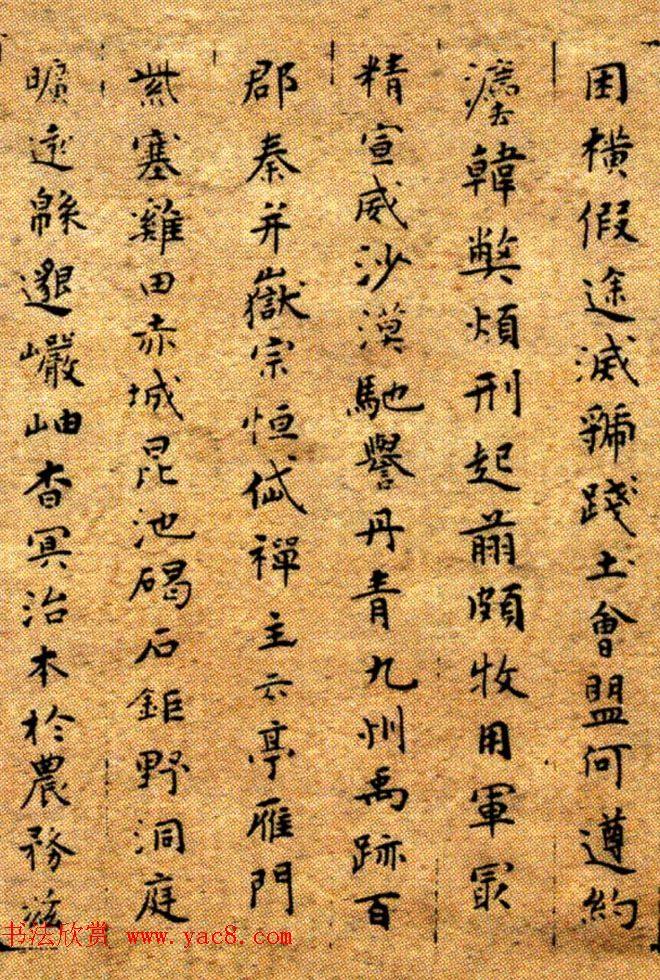 困橫假途滅虢踐土會盟何遵約
法韓弊煩刑起翦頗牧用軍最
精宣威沙漠馳譽丹青九州禹跡百
郡秦并嶽宗恒岱禪主云亭雁門
紫塞雞田赤城昆池碣石鉅野洞庭
曠遠緜邈巖岫杳冥治本於農務茲
书法欣赏 www.yac8.com